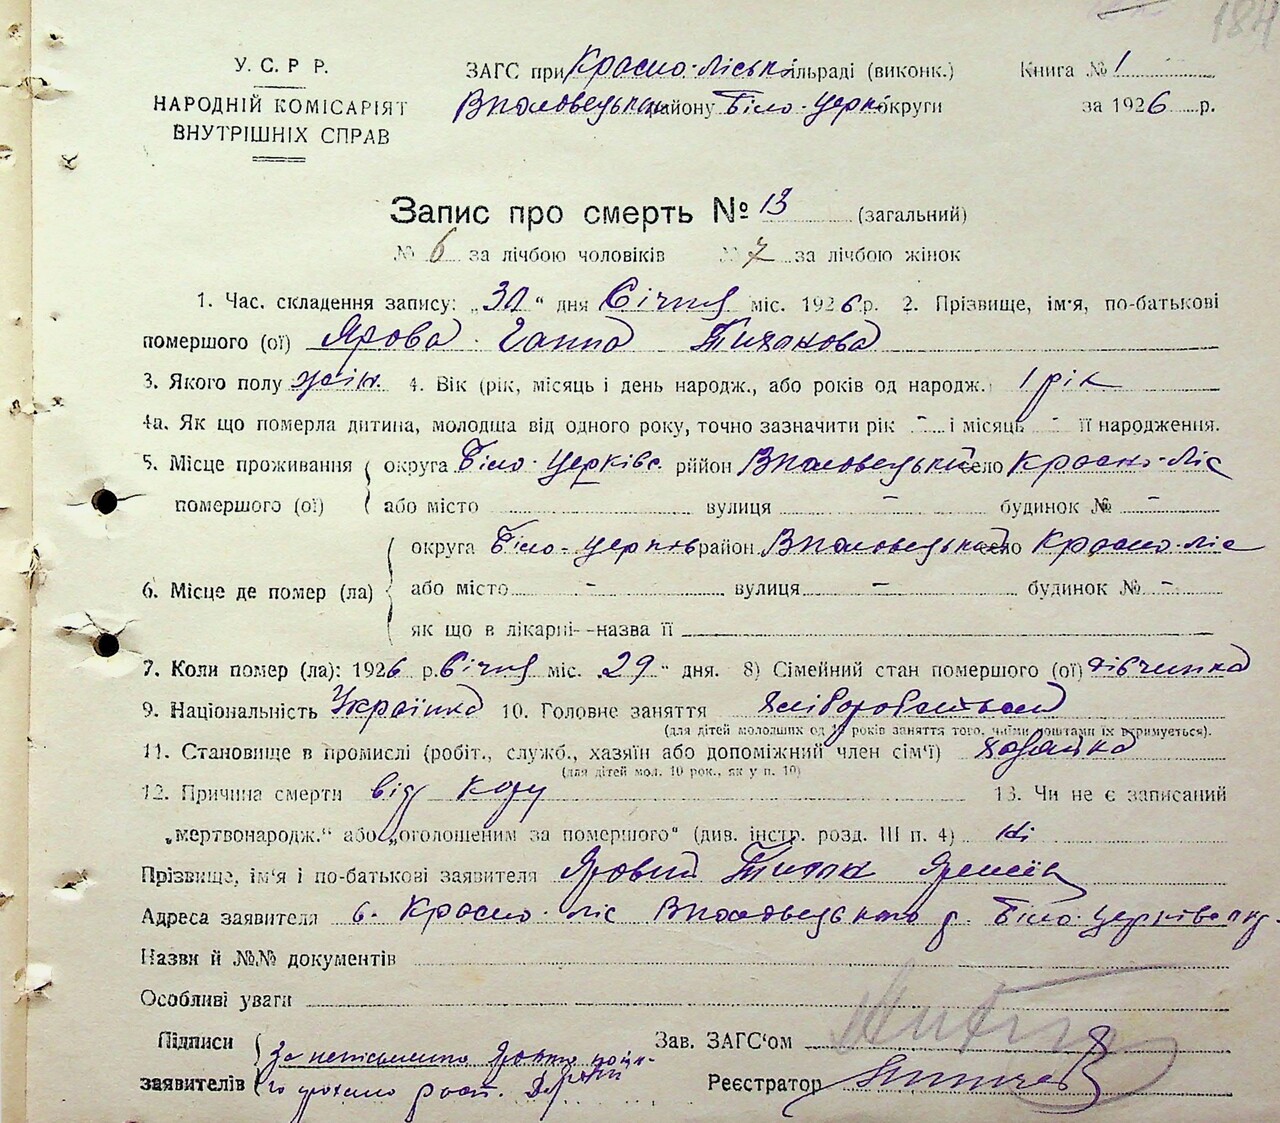 184
У. С. Р Р.
НАРОДНІЙ КОМІСАРІЯТ
ВНУТРІШНІХ СПРАВ
ЗАГС при Красно-ліській сільраді (виконк.)
району Біло-Церк округи
Книга № 1
за 1926 р.
Запис про смерть № 13 (загальний)
№ 6 за лічбою чоловіків № 7 за лічбою жінок
1. Час. складення запису: „31“ дня Січня міс. 1926 р. 2. Прізвище, ім'я, по-батькові
помершого (ої) Ярова Ганна
3. Якого полу жін. 4. Вік (рік, місяць і день народж., або років од народж.) 1 рік
4а. Як що померла дитина, молодша від одного року, точно зазначити рік - і місяць - її народження.
5. Місце проживання помершого (ої) округа Біло-Церківс. район село Красно-ліс
або місто вулиця - будинок № -
6. Місце де помер (ла) округа Біло-Церков район село Красно-ліс
або місто - вулиця - будинок № -
як що в лікарні--назва її
7. Коли помер (ла): 1926 р. Січня міс. 29 „ дня. 8) Сімейний стан помершого (ої) дівчинка
9. Національність Українка 10. Головне заняття хліборобська
(для дітей молодших од 10 років заняття того, чиїми коштами їх втримується).
11. Становище в промислі (робіт., служб., хазяїн або допоміжний член сім'ї) хазяйка
(для дітей мол. 10 рок., як у п. 10)
12. Причина смерти від кору 13. Чи не є записаний
„мертвонародж.“ або „оголошеним за помершого“ (див. інстр. розд. III п. 4) Ні
Прізвище, ім'я і по-батькові заявителя Яровий
Адреса заявителя с. Красно-ліс р. Біло-Церківс окр.
Назви й №№ документів
Особливі уваги
Підписи
заявителів
За неписьменно
Зав. ЗАГС'ом
Реєстратор